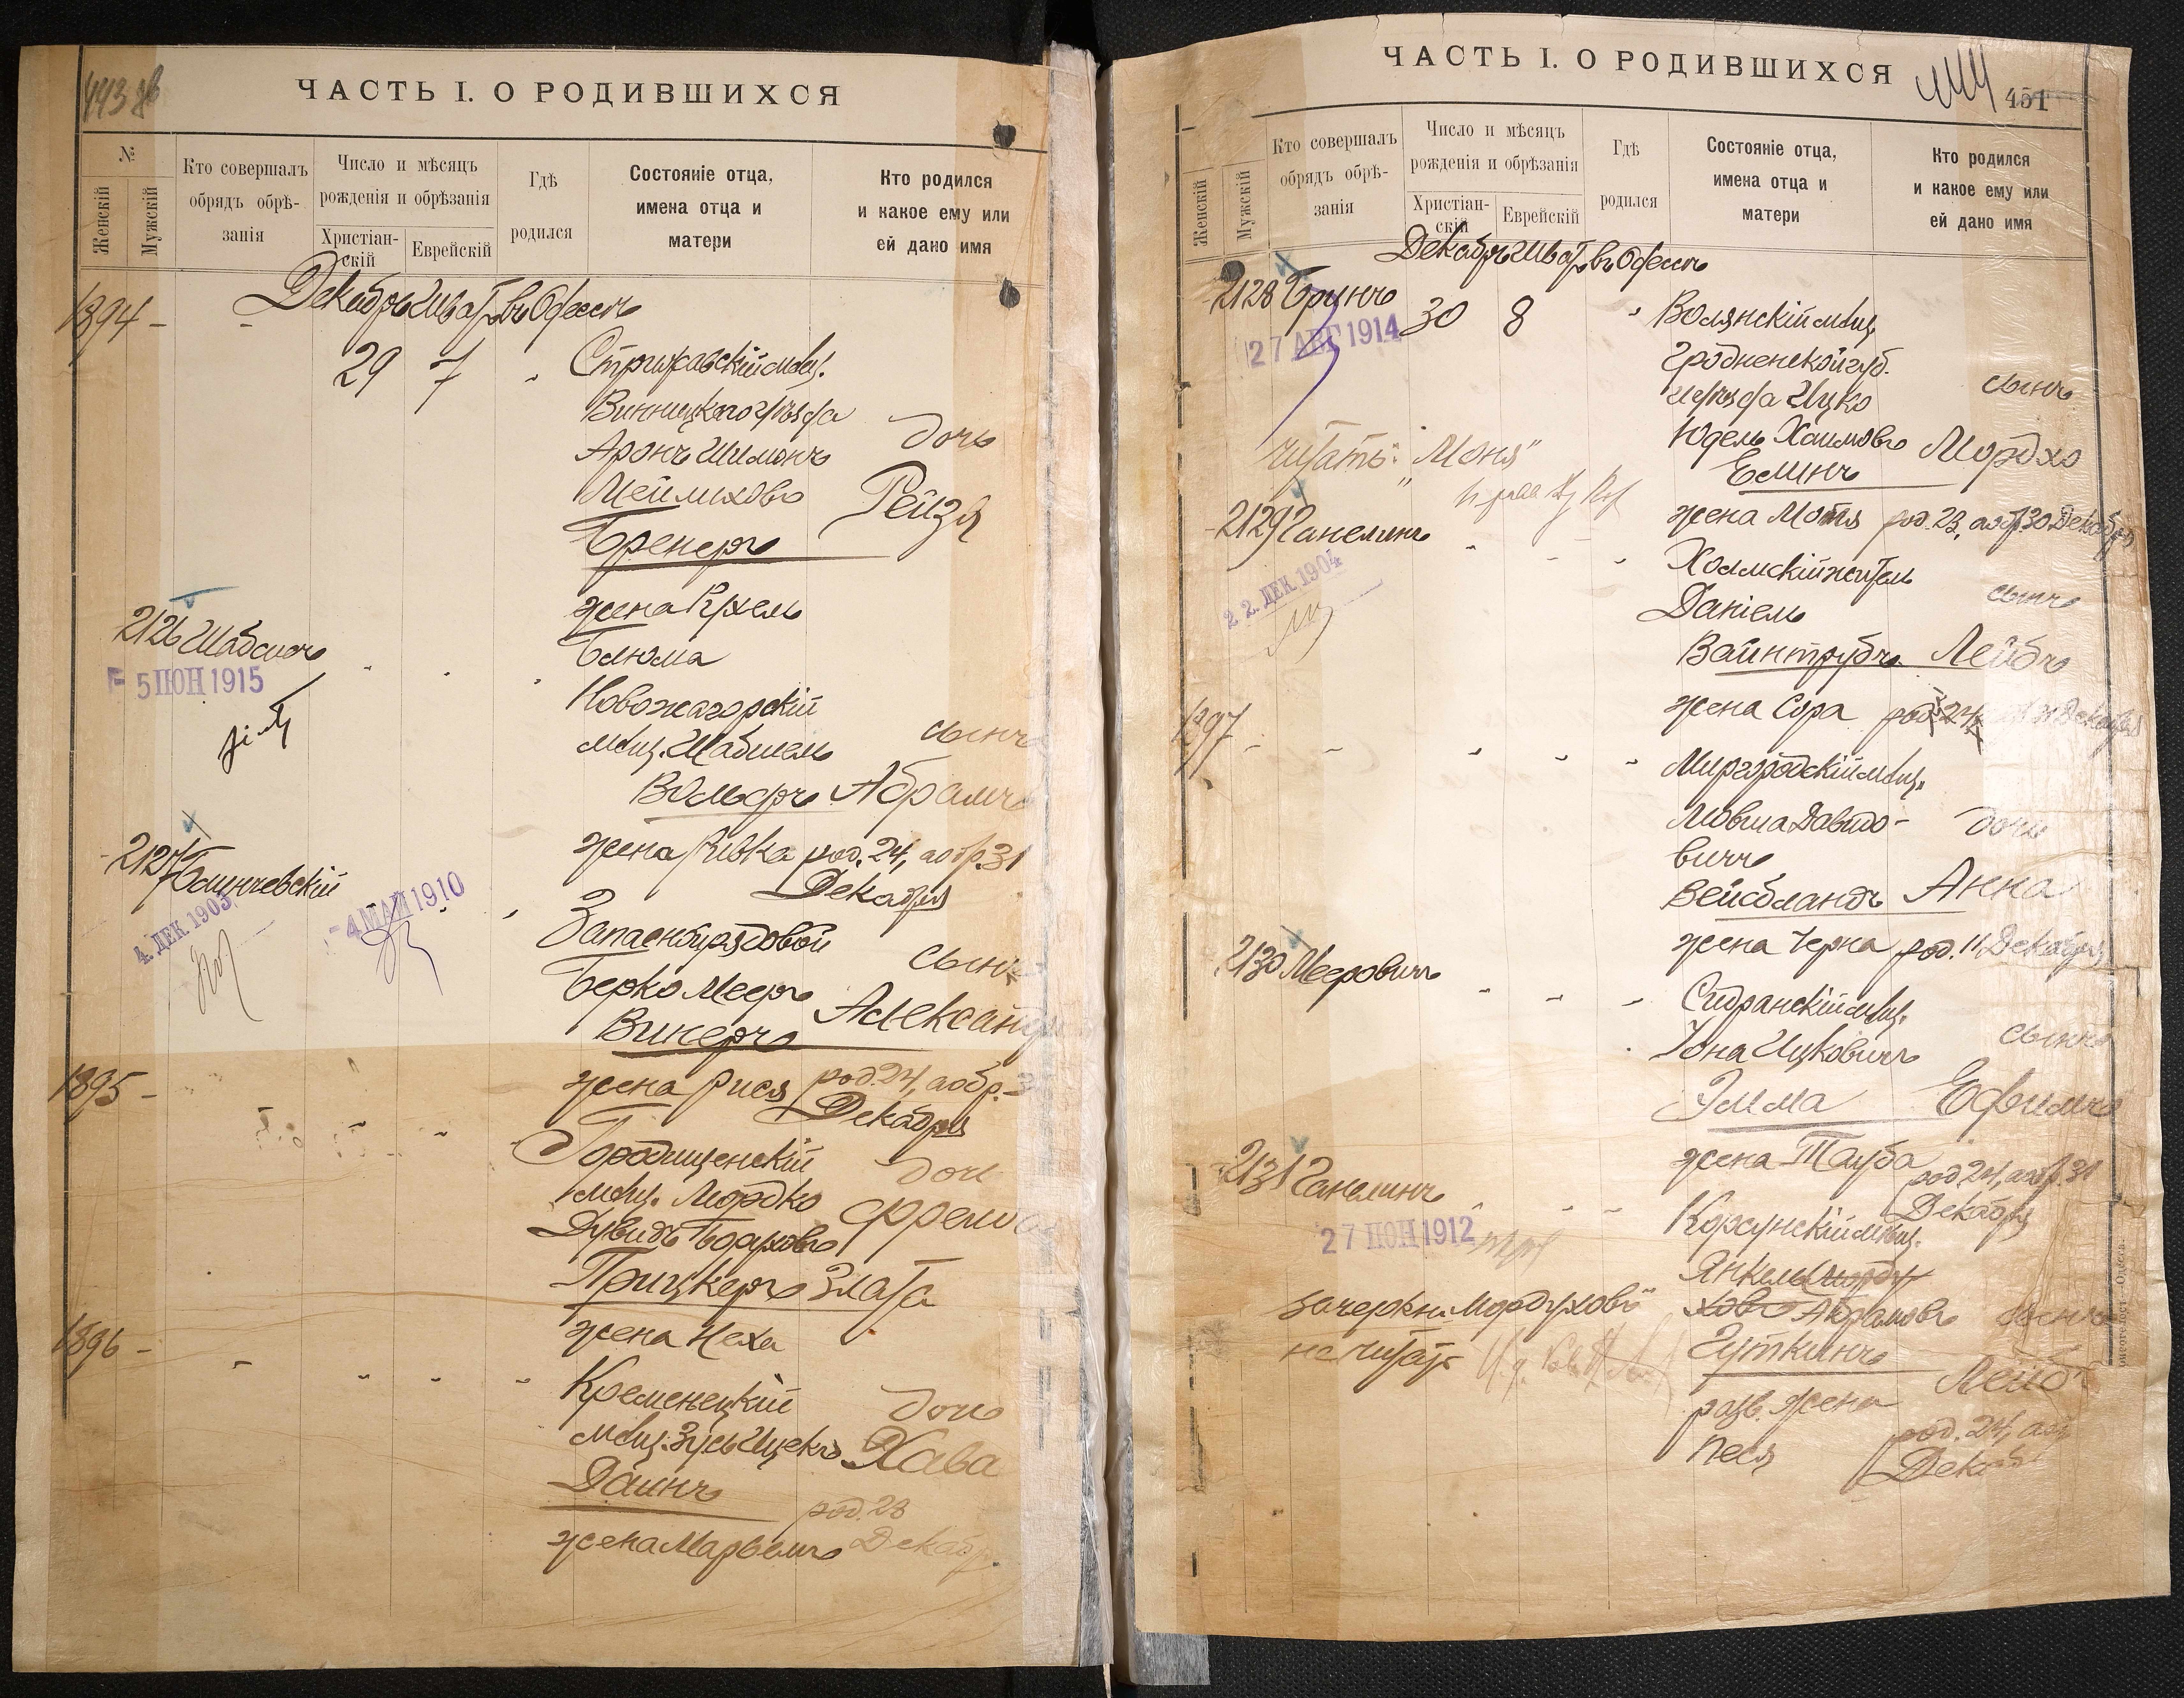 443 об
ЧАСТЬ I. О РОДИВШИХСЯ
№
Женскій
Мужскій
Кто совершалъ обрядъ обрѣзанія
Число и мѣсяцъ рожденія и обрѣзанія
Христіанскій
Еврейскій
Гдѣ родился
Состояніе отца, имена отца и матери
Кто родился и какое ему или ей дано имя
Декабрь Шватъ въ Одессѣ
1894 -
29 7 " Стрижавскій мѣщ.
Винницкаго уѣзда
дочь
Аронъ Шимонъ
Мейлиховъ
Рейзя
Бренеръ
жена Рухель
Блюма
2126 Шабсисъ
5 ІЮН 1915
Новожагорскій
мѣщ. Шабшель
сынъ
Вольфъ
Абрамъ
жена Ривка род. 24, а обр. 31
Декабря
2127
4. ДЕК. 1903
4 МАЙ 1910
Запасный рядовой
сынъ
Берко Мееръ
Винеръ
жена Рися род. 24, а обр. 3
Декабря
1895 -
Городищенскій
дочь
мѣщ. Мордко
Дувидъ Боруховъ
Прицкеръ Злата
жена Неха
1896 -
Кременецкій
дочь
мѣщ. Зусь Ицекъ Хава
Даинъ
род. 28
жена Марьемъ Декабр.
ЧАСТЬ I. О РОДИВШИХСЯ
451
Женскій
Мужскій
Кто совершалъ обрядъ обрѣзанія
Число и мѣсяцъ рожденія и обрѣзанія
Христіанскій
Еврейскій
Гдѣ родился
Состояніе отца, имена отца и матери
Кто родился и какое ему или ей дано имя
Декабрь Шватъ въ Одессѣ
2128 Брунъ 30 8 " Волянскій мѣщ.
27 АВГ 1914
Гродненской губ.
сынъ
и уѣзда Ицко
Юдель Хаимовъ Мордхо
Елинъ
читать: "Моня"
жена Мотя род. 23, а обр. 30 Декабря
2129 Ганелинъ
22. ДЕК. 1904
Холмскій житель
сынъ
Даніель
Вайнтрубъ Лейбъ
жена Сура род. 24, Декабря
1897 -
Миргородскій мѣщ.
Мовша Давидо-
дочь
вичъ
Вейсбландъ Анна
жена Черна род. 11 Декабря
2130 Мееровичъ
мѣщ.
сынъ
Іона Ицковичъ
Элима Ефимъ
жена Тауба род. 24, а обр. 31
Декабря
2131 Ганелинъ
27 ІЮН 1912
Корсунскій мѣщ.
Янкель Морду-
зачеркн. "Мордуховъ" ховъ Абрамовъ сынъ
не читать
Гуткинъ
Лейб
разв. жена
Песя род. 24, а об
Декаб